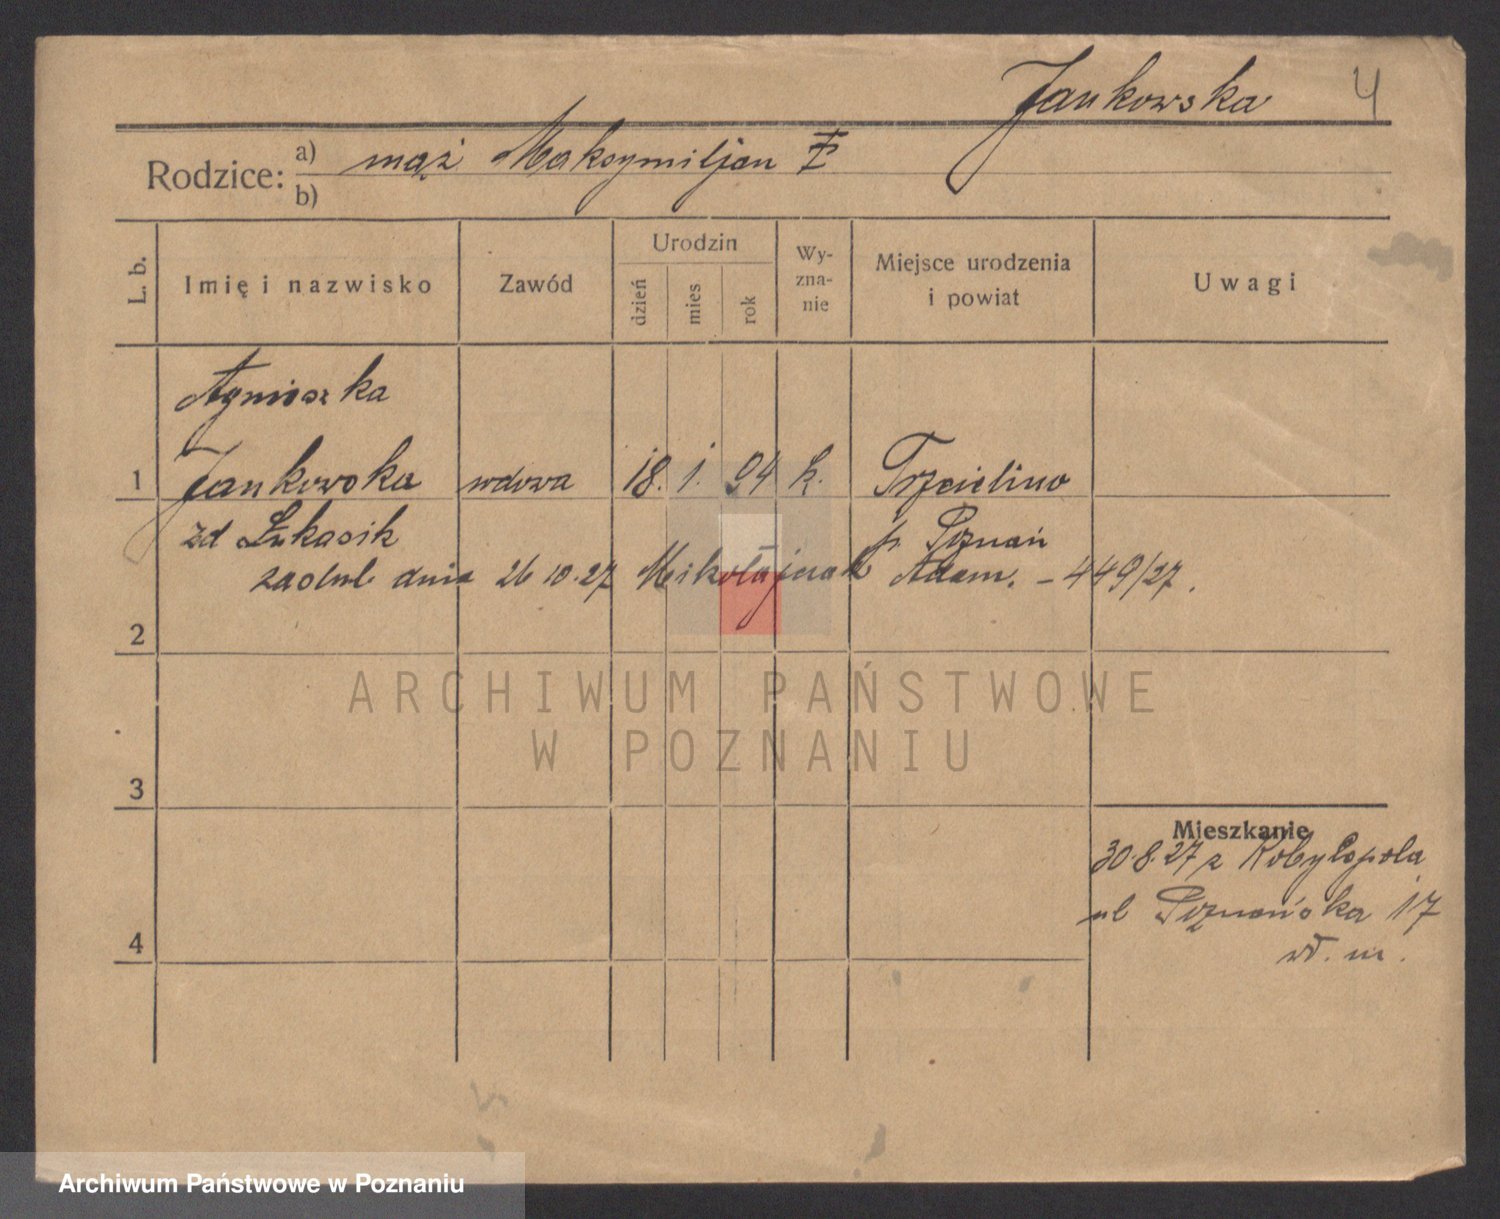 Jankowska 4
Rodzice: a) mąż Maksymiljan
b)
L. b. Imię i nazwisko Zawód Urodzin dzień mies rok Wy-zna-nie Miejsce urodzenia i powiat Uwagi
Agnieszka
1 Jankowska wdowa 18. 1. 94 k. Trzcielino
zd Łukasik p. Poznań
zaślub dnia 26 10.27 Mikołajczak Adam. - 449/27.
2
ARCHIWUM PAŃSTWOWE
W POZNANIU
3
Mieszkanie
30.8.27 z Kobylepola
ul Poznańska 17
wł. m.
4
Archiwum Państwowe w Poznaniu